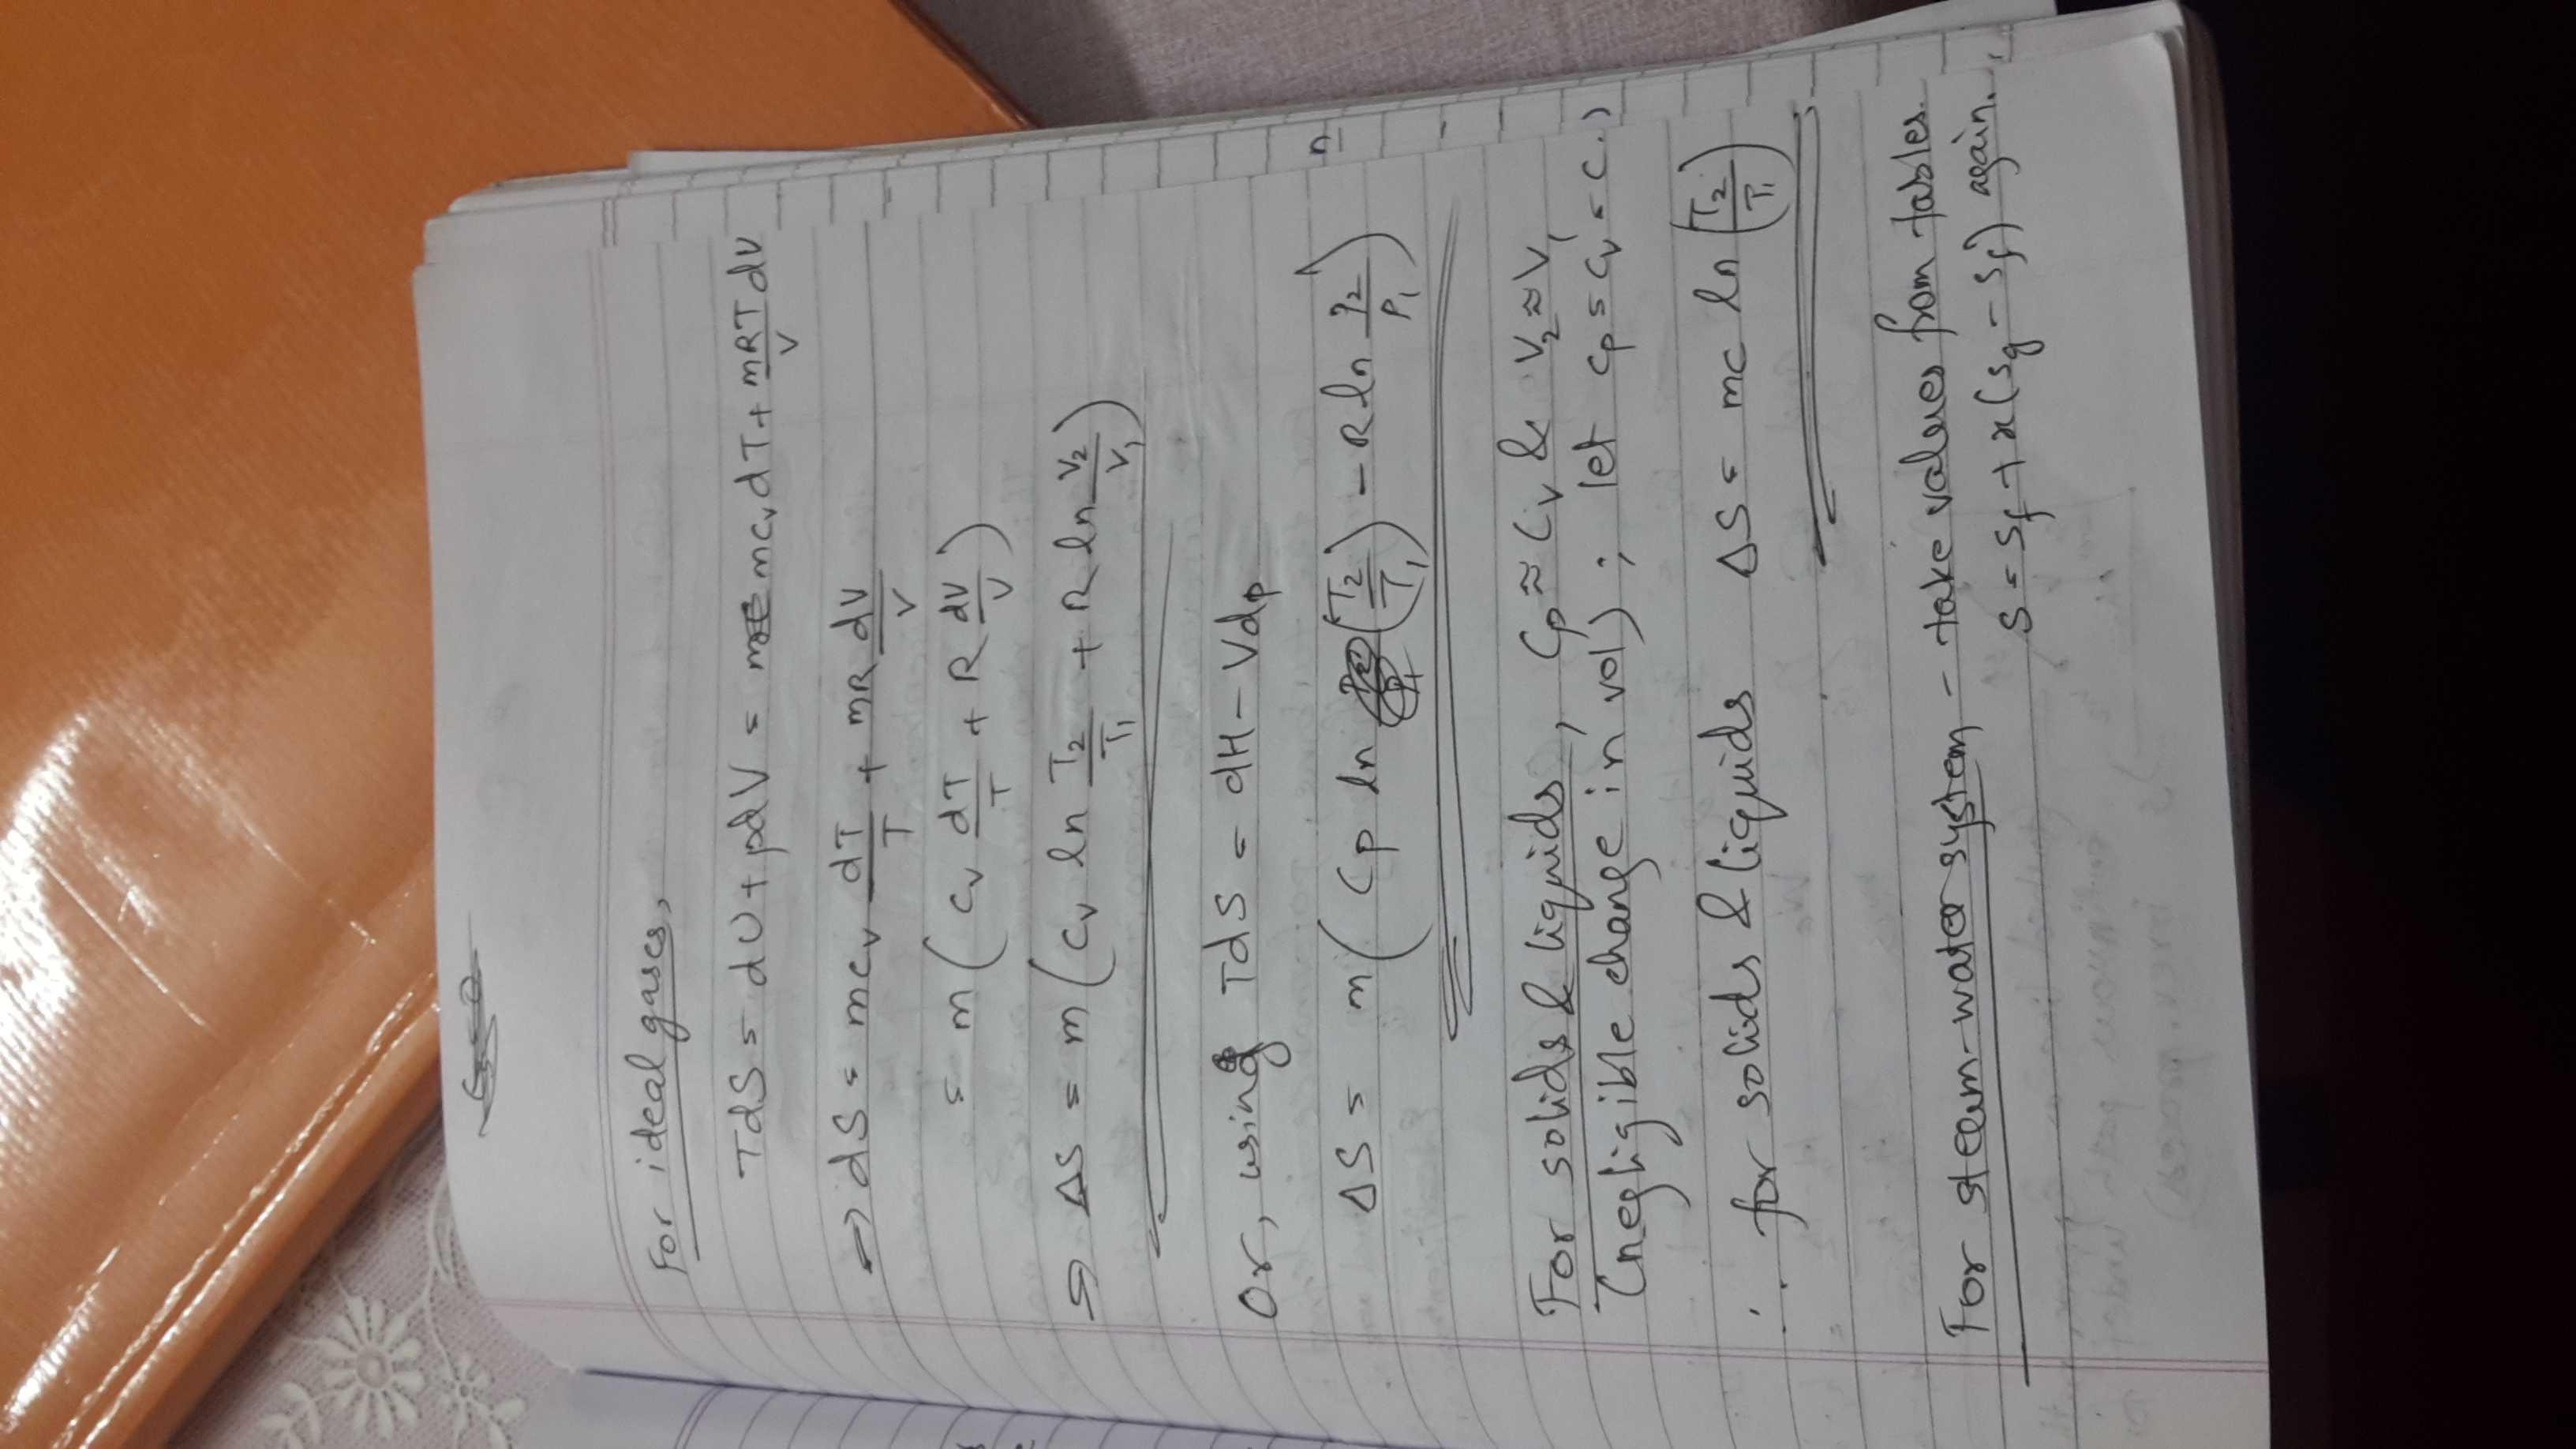 For ideal gases,
TdS = dU + pdV = mc_v dT + mRT/V dV
→ dS = mc_v dT/T + mR dV/V
= m ( c_v dT/T + R dV/V )
⇒ ΔS = m ( c_v ln T₂/T₁ + R ln V₂/V₁ )
Or, using TdS = dH - Vdp
ΔS = m ( Cp ln (T₂/T₁) - R ln P₂/P₁ )
For solids & liquids, Cp ≈ Cv & V₂ ≈ V₁
(negligible change in vol) ; let cp = cv = c.)
∴ for solids & liquids ΔS = mc ln (T₂/T₁)
For steam-water system - take values from tables.
s = s_f + x(s_g - s_f) again.